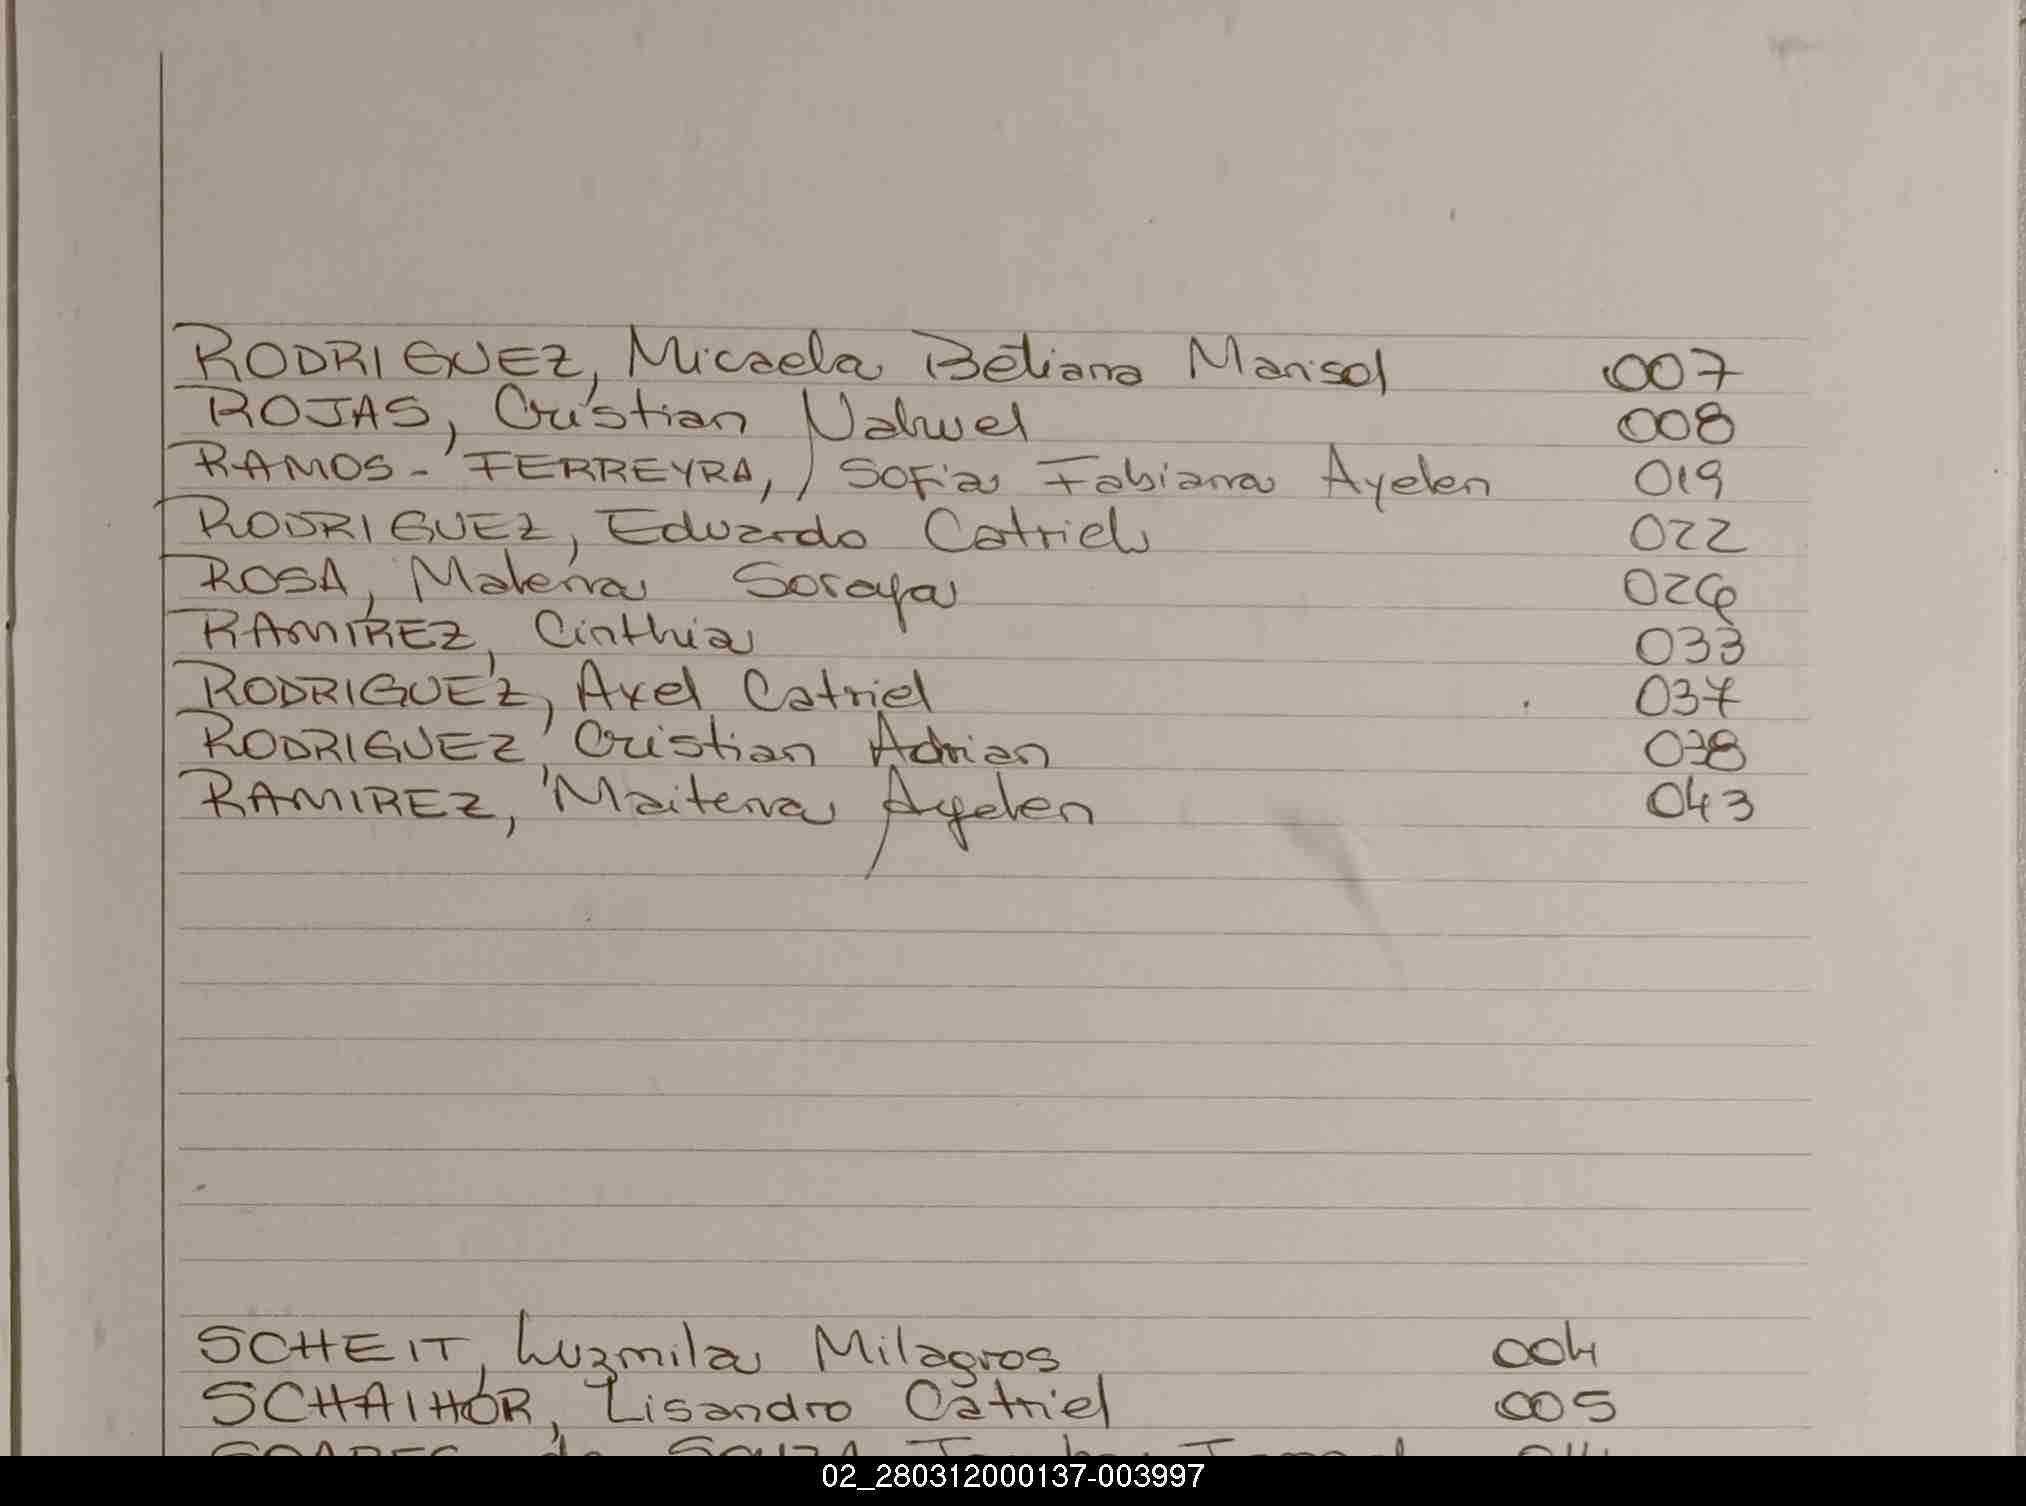 RODRIGUEZ, Micaela Betiana Marisol 007
ROJAS, Cristian Nahuel 008
RAMOS - FERREYRA, Sofia Fabiana Ayelen 019
RODRIGUEZ, Eduardo Catriel 022
ROSA, Malena Soraya 026
RAMIREZ, Cinthia 033
RODRIGUEZ, Axel Catriel 037
RODRIGUEZ, Cristian Adrian 038
RAMIREZ, Maitena Ayelen 043
SCHEIT, Luzmila Milagros 004
SCHAIHOR, Lisandro Catriel 005
02_280312000137-003997